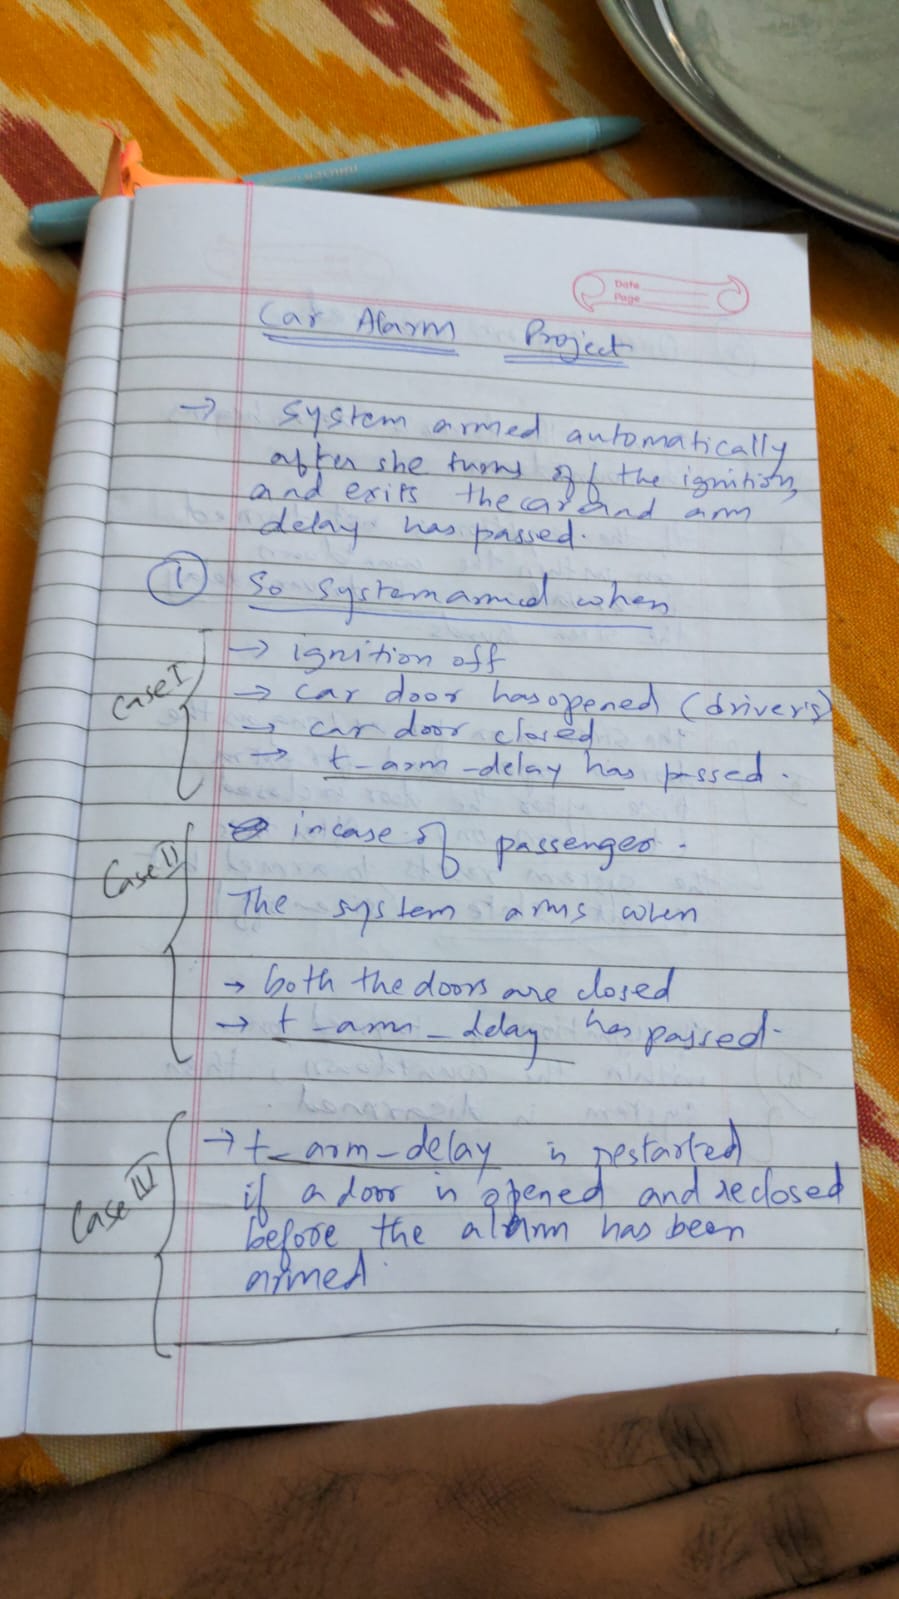 Date
Page
Car Alarm Project
→ system armed automatically
after she turns off the ignition,
and exits the car and arm
delay has passed.
① So system armed when
Case I
→ ignition off
→ car door has opened (drivers)
→ car door closed
→ t-arm-delay has passed.
Case II
incase of passenger.
The system arms when
→ both the doors are closed
→ t-arm-delay has passed.
Case III
→ t-arm-delay is restarted
if a door is opened and reclosed
before the alarm has been
armed.